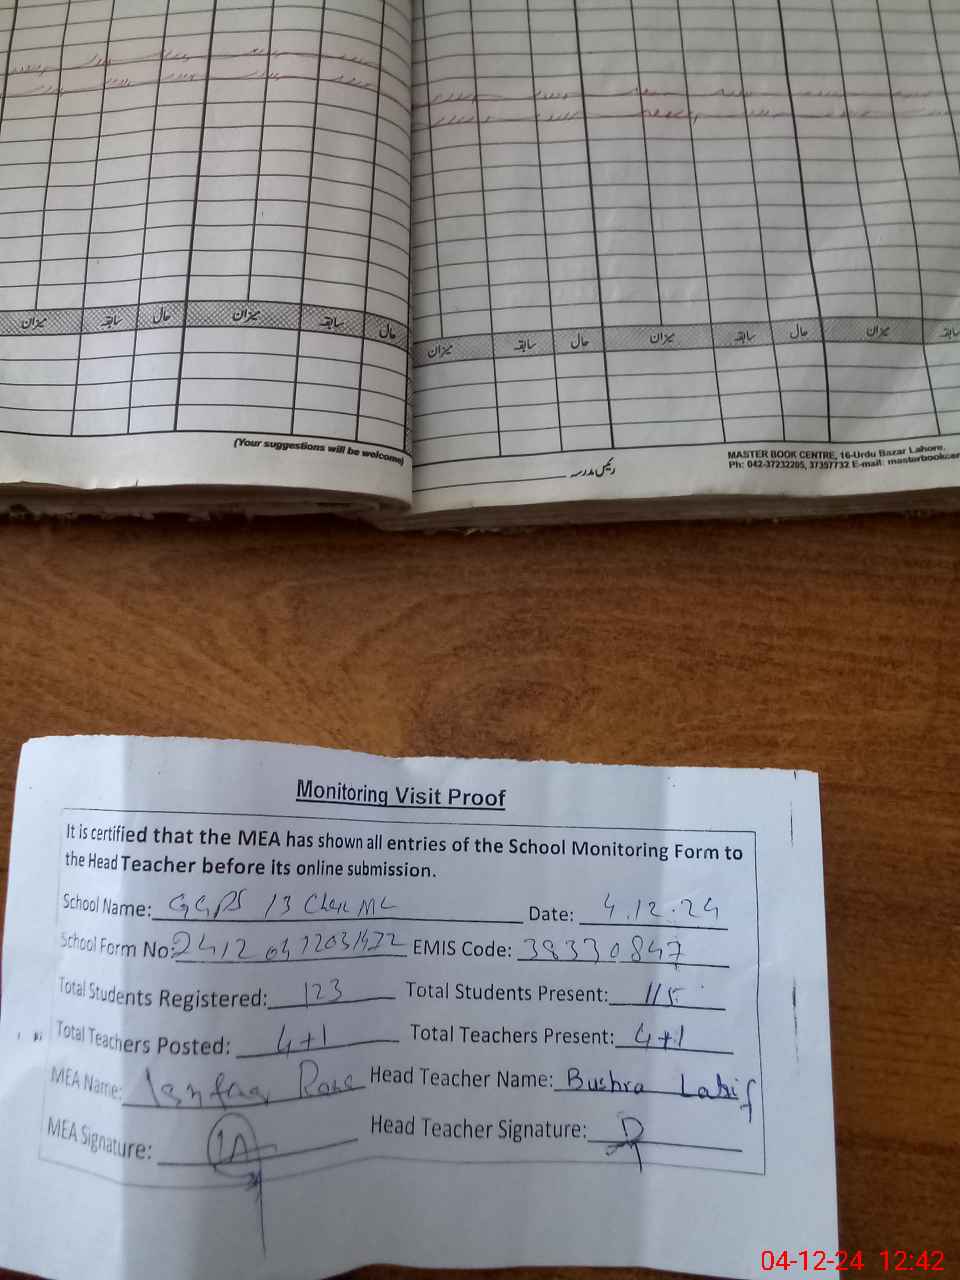 میزان سابقہ حال میزان سابقہ حال
میزان سابقہ حال میزان سابقہ حال میزان
(Your suggestions will be welcome)
رئیس مدرسہ
MASTER BOOK CENTRE, 16-Urdu Bazar Lahore.
Ph: 042-37232205, 37357732 E-mail:
Monitoring Visit Proof
It is certified that the MEA has shown all entries of the School Monitoring Form to
the Head Teacher before its online submission.
School Name: GGPS 13 Chak ML Date: 4.12.24
School Form No: EMIS Code: 38330847
Total Students Registered: 123 Total Students Present: 115
Total Teachers Posted: 4+1 Total Teachers Present: 4+1
MEA Name: Head Teacher Name: Bushra Latif
MEA Signature: Head Teacher Signature:
04-12-24 12:42